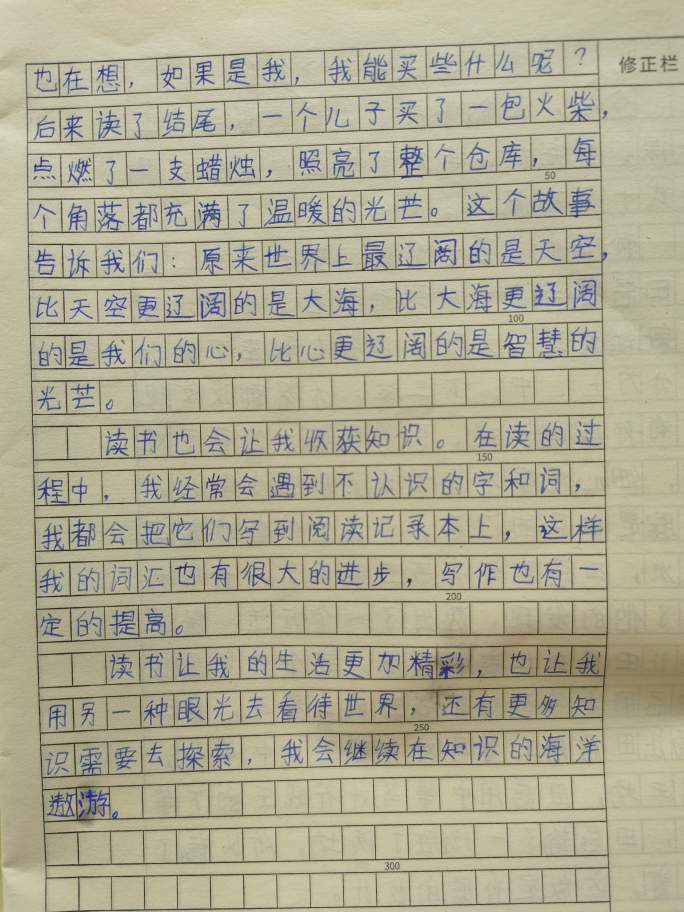 也在想，如果是我，我能买些什么呢？
修正栏
后来读了结尾，一个儿子买了一包火柴，
点燃了一支蜡烛，照亮了整个仓库，每
50
个角落都充满了温暖的光芒。这个故事
告诉我们：原来世界上最辽阔的是天空，
比天空更辽阔的是大海，比大海更辽阔
100
的是我们的心，比心更辽阔的是智慧的
光芒。
读书也会让我收获知识。在读的过
150
程中，我经常会遇到不认识的字和词，
我都会把它们写到阅读记录本上，这样
我的词汇也有很大的进步，写作也有一
200
定的提高。
读书让我的生活更加精彩，也让我
用另一种眼光去看待世界，还有更多知
250
识需要去探索，我会继续在知识的海洋
遨游。
300